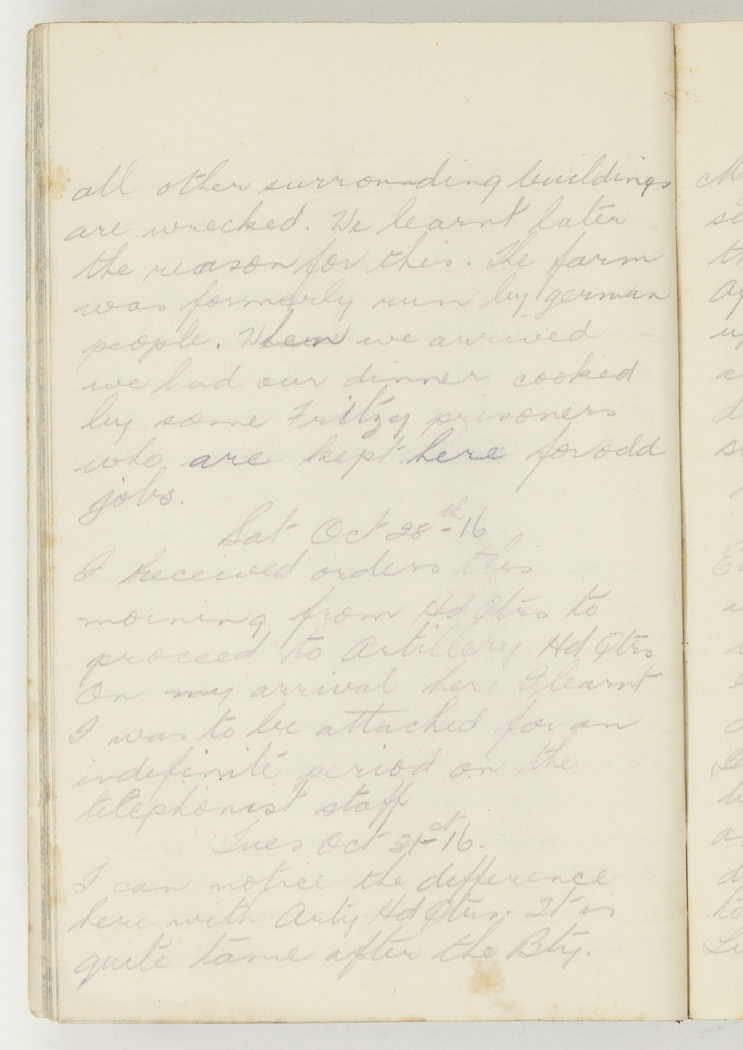 all other surrounding buildings
are wrecked. We learnt later
the reason for this. The farm
was formerly run by german
people. When we arrived
we had our dinner cooked
by some Fritzy prisoners
who are kept here for odd
jobs.
Sat Oct 28th-16
I received orders this
morning from Hd Qtrs to
proceed to Artillery Hd Qtrs
On my arrival here I learnt
I was to be attached for an
indefinite period on the
telephonist staff
Tues Oct 31st-16.
I can notice the difference
here with Arty Hd Qtrs. It is
quite tame after the Bty.